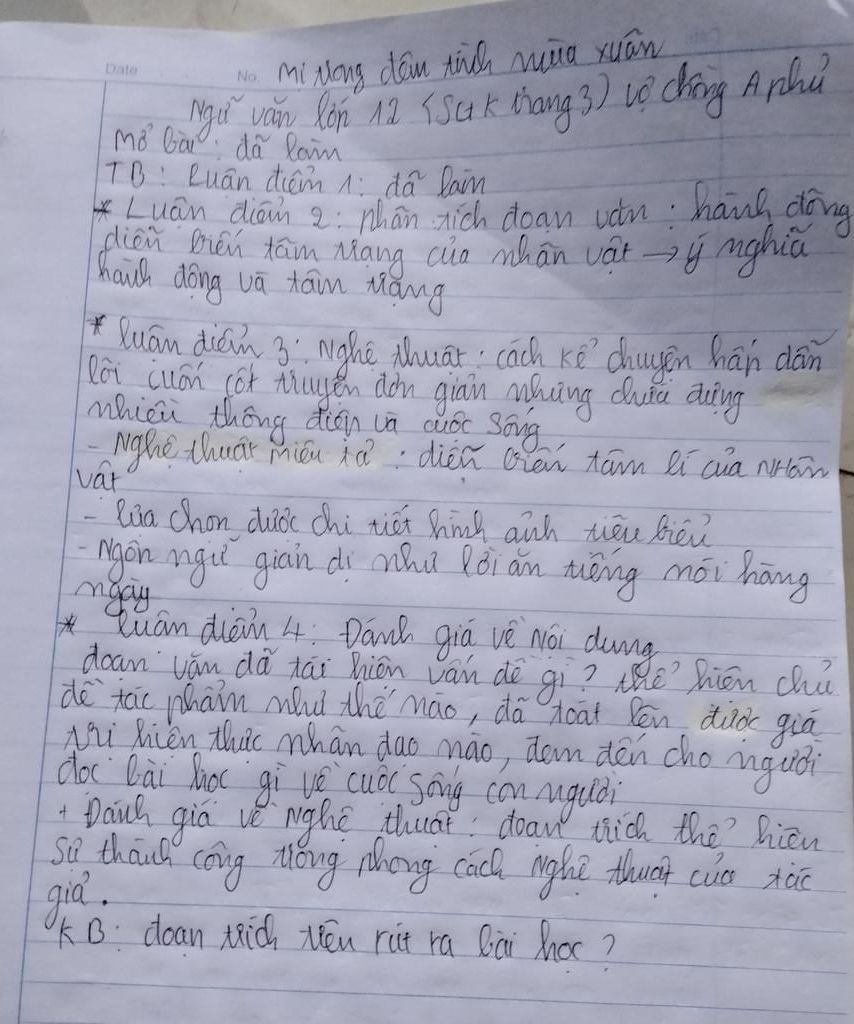 Date No. Mị trong đêm tình mùa xuân
Ngữ văn lớp 12 (SGK trang 3) vợ chồng A phủ
Mở bài: đã làm
TB: Luận điểm 1: đã làm
* Luận điểm 2: phân tích đoạn văn: hành động
diễn biến tâm trạng của nhân vật → ý nghĩa
hành động và tâm trạng
* Luận điểm 3: Nghệ thuật: cách kể chuyện hấp dẫn
lôi cuốn cốt truyện đơn giản nhưng chứa đựng
nhiều thông điệp và cuộc sống
- Nghệ thuật miêu tả: diễn biến tâm lí của Nhân
vật
- Lựa chọn được chi tiết hình ảnh tiêu biểu
- Ngôn ngữ giản dị như lời ăn tiếng nói hàng
ngày
* Luận điểm 4: Đánh giá về Nội dung
đoạn văn đã tái hiện vấn đề gì? thể hiện chủ
đề tác phẩm như thế nào, đã toát lên được giá
trị hiện thực nhân đạo nào, đem đến cho người
đọc bài học gì về cuộc sống con người
+ Đánh giá về Nghệ thuật: đoạn trích thể hiện
sự thành công trong phong cách Nghệ thuật của tác
giả.
KB: đoạn trích trên rút ra bài học?